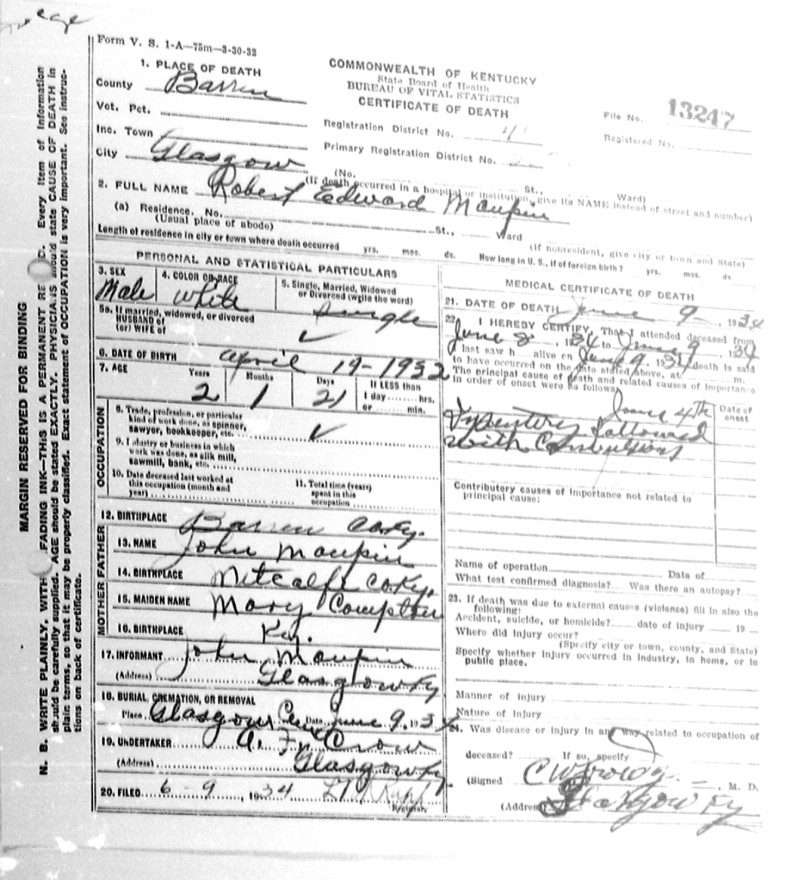 Form V. S. 1-A—75m—3-30-32
COMMONWEALTH OF KENTUCKY
State Board of Health
BUREAU OF VITAL STATISTICS
CERTIFICATE OF DEATH
File No. 13247
Registered No.
1. PLACE OF DEATH
County Barren
Vot. Pct.
Inc. Town
City Glasgow
Registration District No.
Primary Registration District No.
(No. St., Ward)
(If death occurred in a hospital or institution, give its NAME instead of street and number)
2. FULL NAME Robert Edward Maupin
(a) Residence. No. St., Ward
(Usual place of abode) (If nonresident, give city or town and State)
Length of residence in city or town where death occurred yrs. mos. ds. How long in U. S., if of foreign birth? yrs. mos. ds
PERSONAL AND STATISTICAL PARTICULARS
3. SEX Male
4. COLOR OR RACE White
5. Single, Married, Widowed
or Divorced (write the word)
Single
5a. If married, widowed, or divorced
HUSBAND of
(or) WIFE of
6. DATE OF BIRTH April 19-1932
7. AGE Years Months Days If LESS than
2 1 21 1 day hrs.
or min.
OCCUPATION
8. Trade, profession, or particular
kind of work done, as spinner,
sawyer, bookkeeper, etc.
9. Industry or business in which
work was done, as silk mill,
sawmill, bank, etc.
10. Date deceased last worked at
this occupation (month and
year)
11. Total time (years)
spent in this
occupation
12. BIRTHPLACE Barren Co Ky.
FATHER
13. NAME John Maupin
14. BIRTHPLACE Metcalfe Co Ky.
MOTHER
15. MAIDEN NAME Mary Compton
16. BIRTHPLACE Ky.
17. INFORMANT John Maupin
(Address) Glasgow Ky
18. BURIAL, CREMATION, OR REMOVAL
Place Glasgow Cem Date June 9, 1934
19. UNDERTAKER A. F. Crow
(Address) Glasgow Ky.
20. FILED 6-9 1934
Registrar.
MEDICAL CERTIFICATE OF DEATH
21. DATE OF DEATH June 9, 1934
22. I HEREBY CERTIFY, That I attended deceased from
June 8, 1934 to June 9, 1934
I last saw h alive on June 9, 1934 death is said
to have occurred on the date stated above, at m.
The principal cause of death and related causes of importance
in order of onset were as follows:
Date of
onset
June 4th
Dysentery followed
with Convulsions
Contributory causes of importance not related to
principal cause:
Name of operation Date of
What test confirmed diagnosis? Was there an autopsy?
23. If death was due to external causes (violence) fill in also the
following:
Accident, suicide, or homicide? date of injury 19
Where did injury occur?
(Specify city or town, county, and State)
Specify whether injury occurred in industry, in home, or in
public place.
Manner of injury
Nature of injury
24. Was disease or injury in any way related to occupation of
deceased? If so, specify
(Signed , M. D.
(Address) Glasgow Ky
MARGIN RESERVED FOR BINDING
N. B. WRITE PLAINLY, WITH FADING INK—THIS IS A PERMANENT Every item of information
should be carefully supplied. AGE should be stated EXACTLY. should state CAUSE OF DEATH in
plain terms, so that it may be properly classified. Exact statement of OCCUPATION is very important. See instruc-
tions on back of certificate.